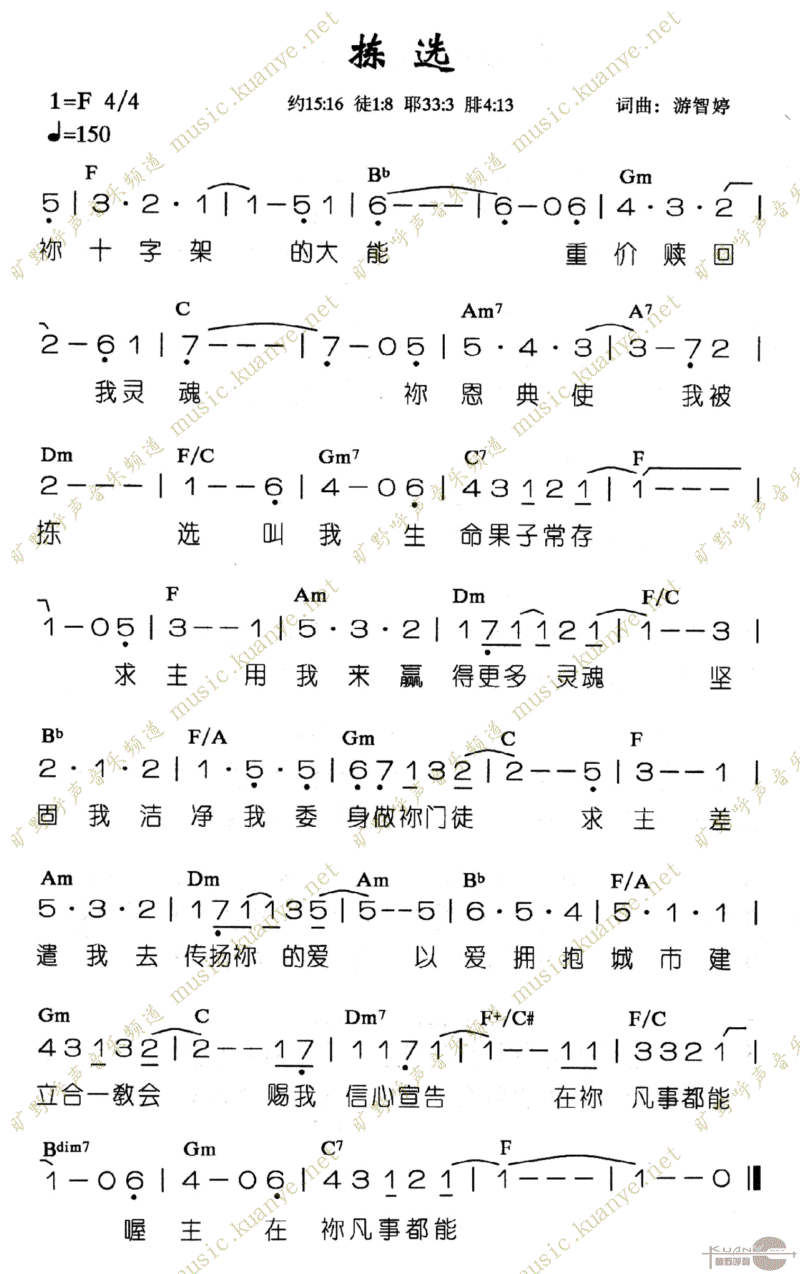 拣选
1=F 4/4 约15:16 徒1:8 耶33:3 腓4:13 词曲：游智婷
♩=150
F Bb Gm
5 | 3 · 2 · 1 | 1 - 5 1 | 6 - - - | 6 - 0 6 | 4 · 3 · 2 |
祢十字架 的大能 重价赎回
C Am7 A7
2 - 6 1 | 7 - - - | 7 - 0 5 | 5 · 4 · 3 | 3 - 7 2 |
我灵魂 祢恩典使 我被
Dm F/C Gm7 C7 F
2 - - - | 1 - - 6 | 4 - 0 6 | 4 3 1 2 1 | 1 - - - |
拣 选叫我 生命果子常存
F Am Dm F/C
1 - 0 5 | 3 - - 1 | 5 · 3 · 2 | 1 7 1 1 2 1 | 1 - - 3 |
求主用我来赢得更多灵魂 坚
Bb F/A Gm C F
2 · 1 · 2 | 1 · 5 · 5 | 6 7 1 3 2 | 2 - - 5 | 3 - - 1 |
固我洁净我委身做祢门徒 求主差
Am Dm Am Bb F/A
5 · 3 · 2 | 1 7 1 1 3 5 | 5 - - 5 | 6 · 5 · 4 | 5 · 1 · 1 |
遣我去传扬祢的爱 以爱拥抱城市建
Gm C Dm7 F+/C# F/C
4 3 1 3 2 | 2 - - 1 7 | 1 1 7 1 | 1 - - 1 1 | 3 3 2 1 |
立合一教会 赐我信心宣告 在祢凡事都能
Bdim7 Gm C7 F
1 - 0 6 | 4 - 0 6 | 4 3 1 2 1 | 1 - - - | 1 - - 0 ‖
喔主在祢凡事都能
旷野呼声音乐频道 music.kuanye.net